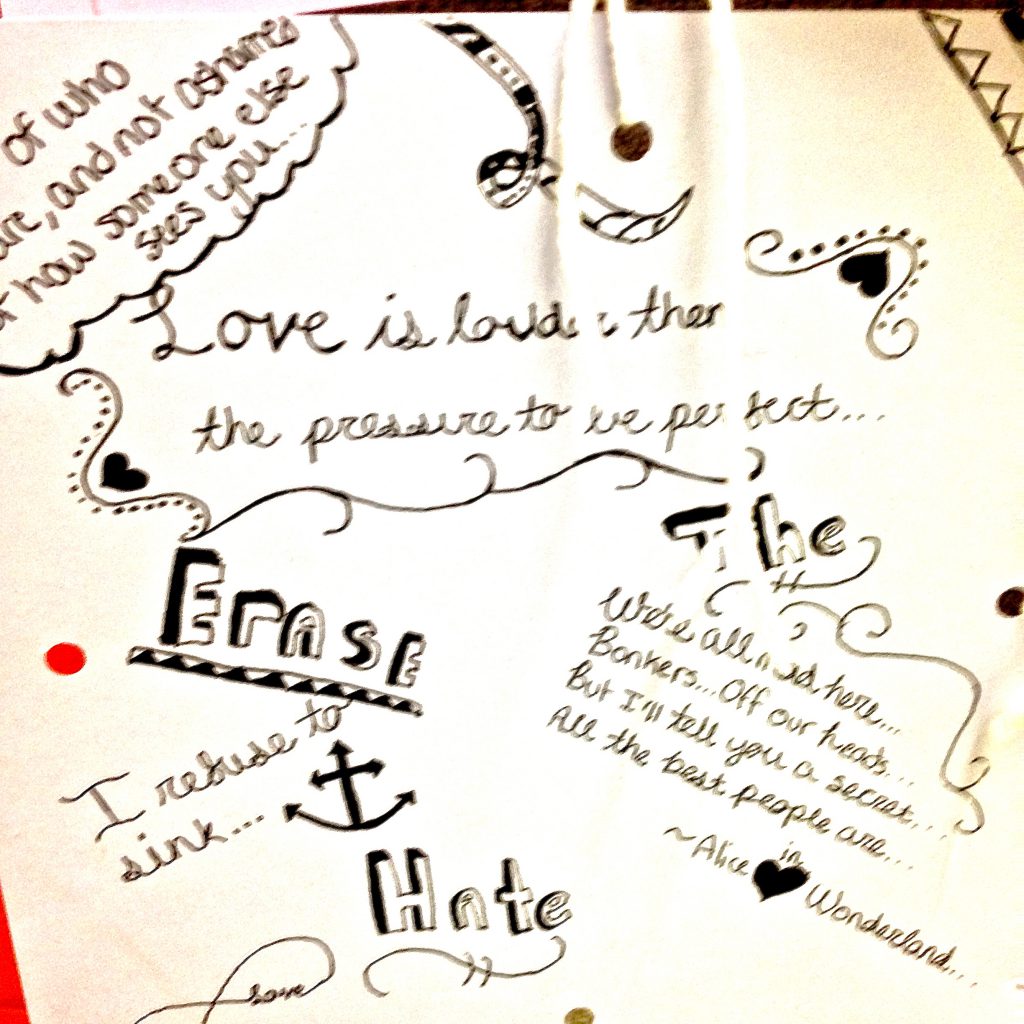 of who
are, and not ashamed
of how someone else
sees you...
Love is louder then
the pressure to be perfect...
Erase
The
We're all mad here...
Bonkers... Off our heads...
But I'll tell you a secret...
All the best people are...
~Alice in Wonderland...
I refuse to
sink...
Hate
love